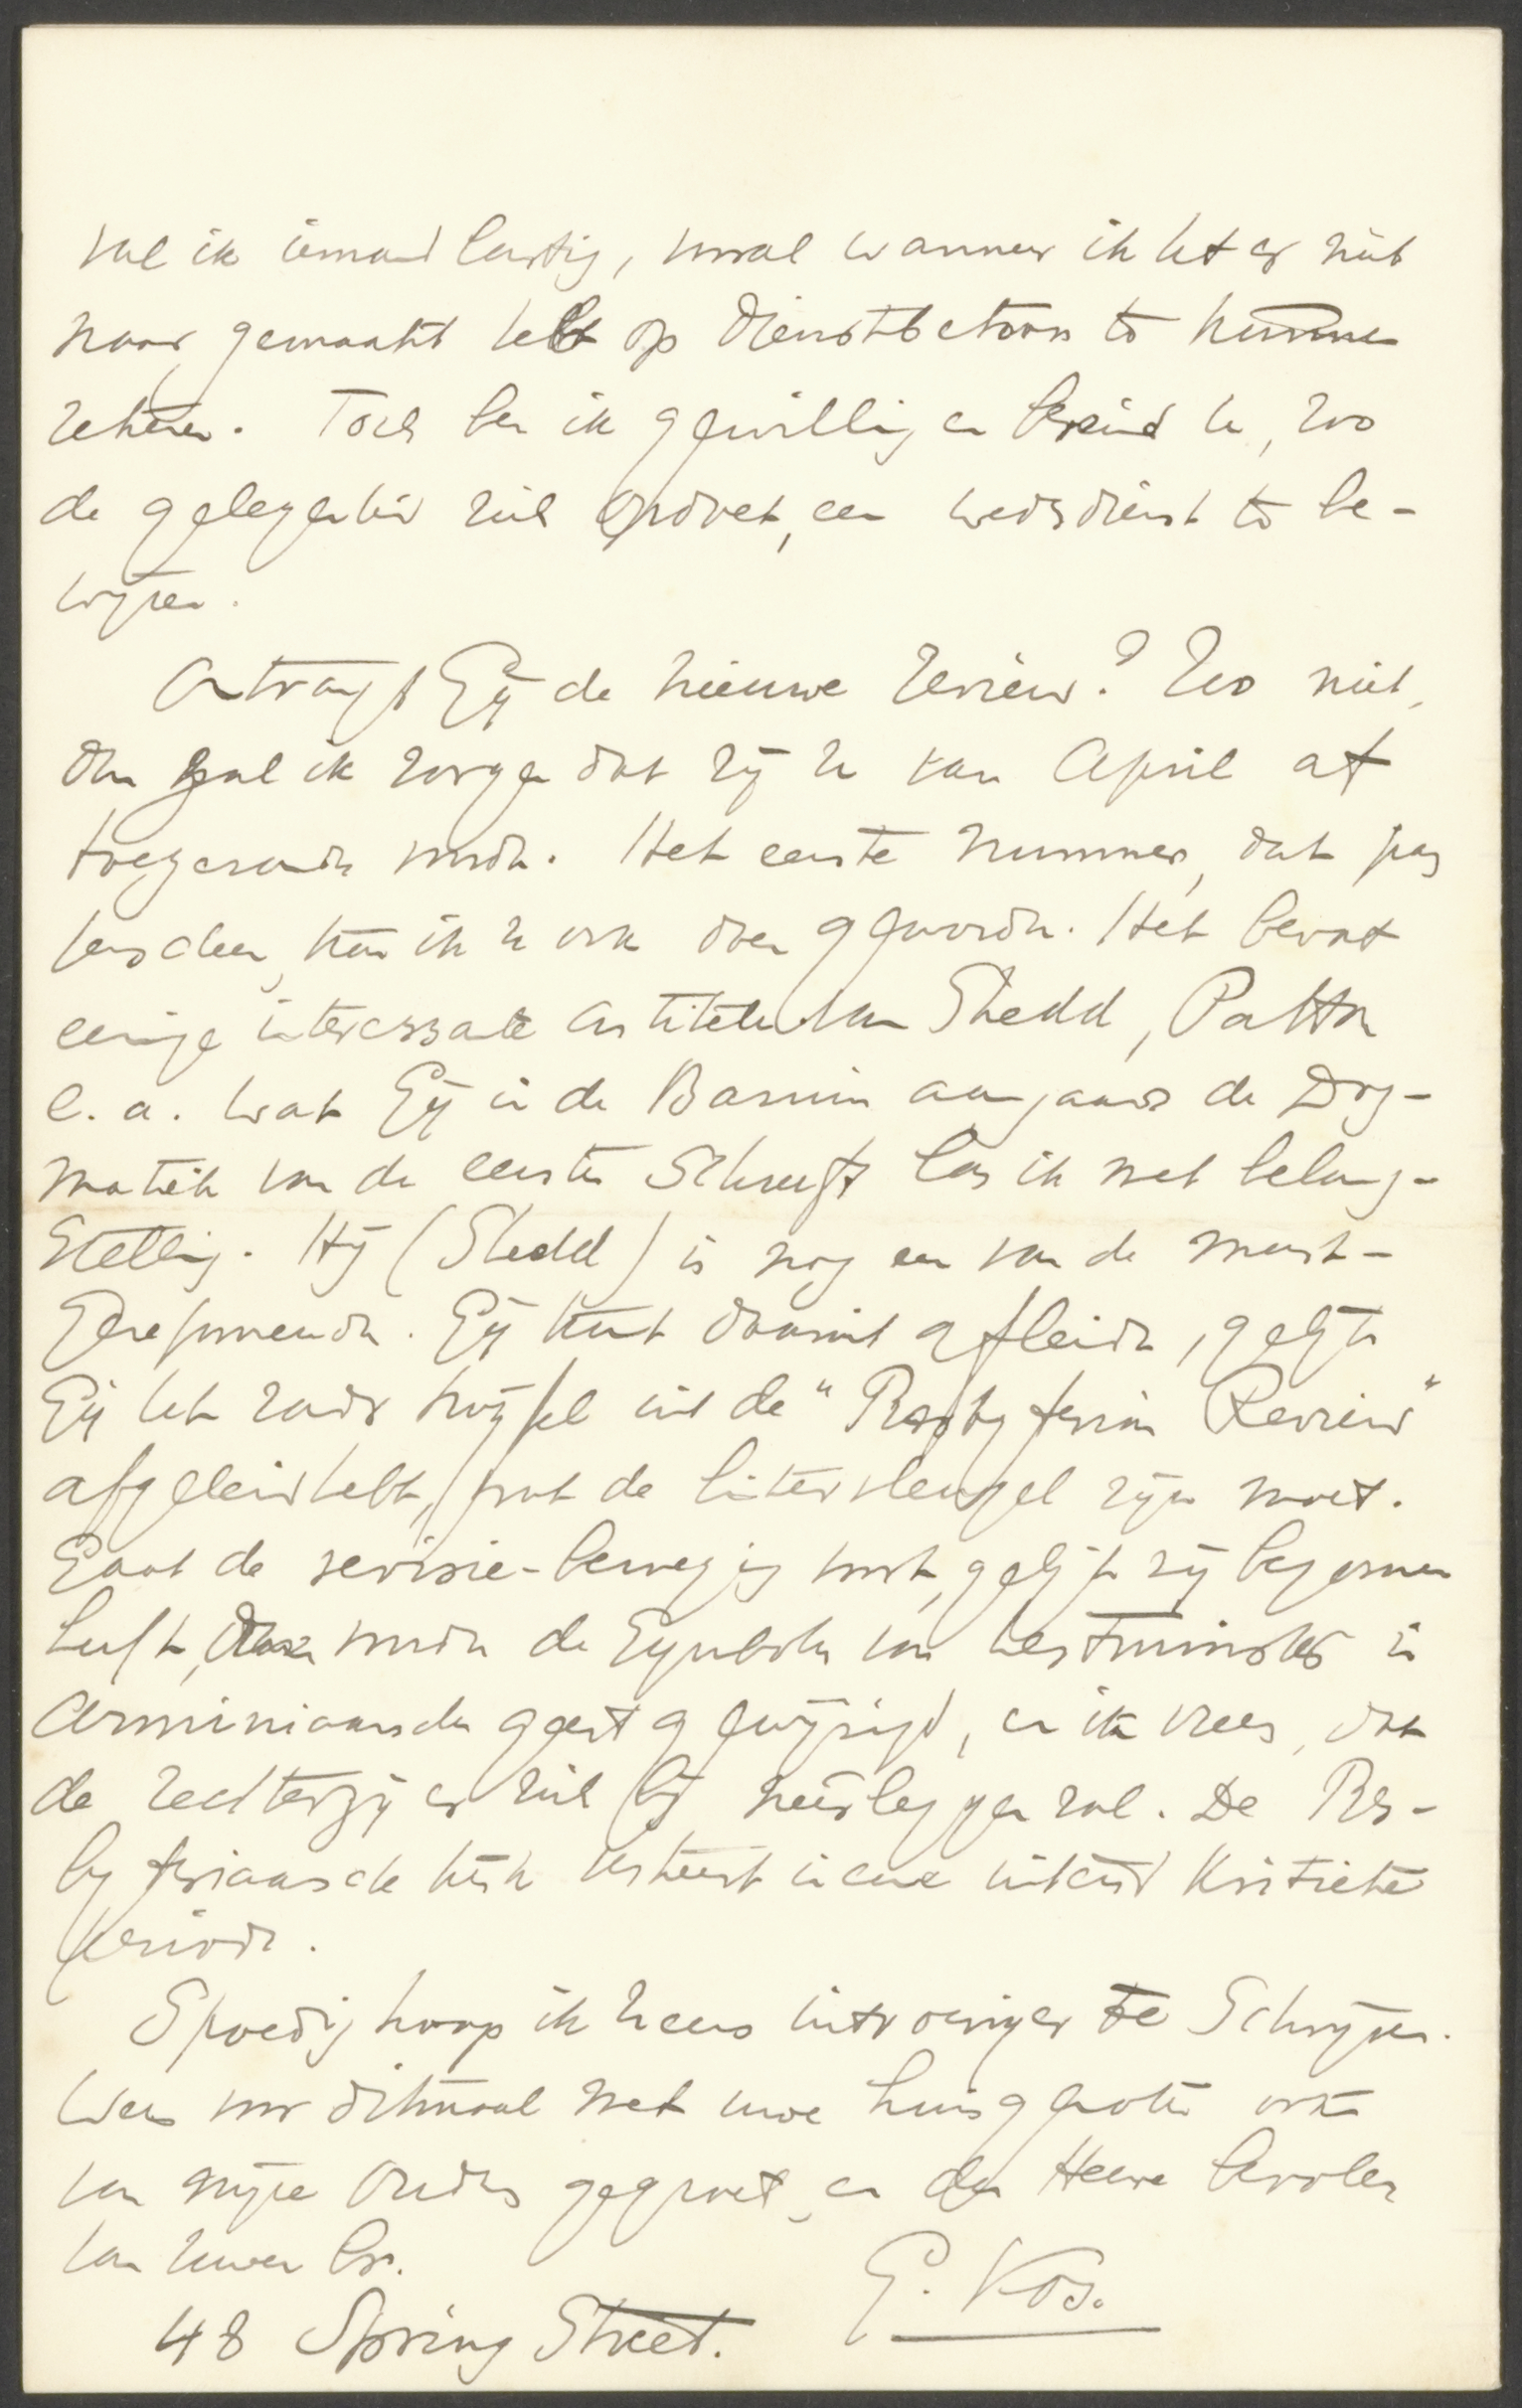 val ik iemand lastig, vooral wanneer ik het er niet
naar gemaakt heb op dienstbetoon te kunnen
rekenen. Toch ben ik gewillig en bereid u, zoo
de gelegenheid zich opdoet, een wederdienst te be-
wijzen.
Ontvangt Gij de nieuwe Review? Zoo niet,
dan zal ik zorgen dat zij u van April af
toegezonden wordt. Het eerste nummer, dat pas
verscheen, kan ik u ook doen geworden. Het bevat
eenige interessante artikelen van Shedd, Patton
e. a. Wat Gij in de Bazuin aangaande de Dog-
matiek van de eersten schreeft las ik met belang-
stelling. Hij (Shedd) is nog een van de meest-
Gereformeerden. Gij kunt daaruit afleiden, gelijk
Gij het zonder twijfel uit de "Presbyterian Review"
afgeleid hebt, wat de linkervleugel zijn moet.
Gaat de revisie-beweging voort, gelijk zij begonnen
heeft, dan worden de Symbolen van Westminster in
Arminiaanschen geest gewijzigd, en ik vrees, dat
de rechterzij er zich bij neerleggen zal. De Pres-
byteriaansche kerk verkeert in eene uiterst kritieke
periode.
Spoedig hoop ik u eens uitvoeriger te schrijven.
Wees voor ditmaal met uwe huisgenooten ook
van mijne Ouders gegroet, en den Heere bevolen
van uwen br.
G. Vos.
48 Spring Street.